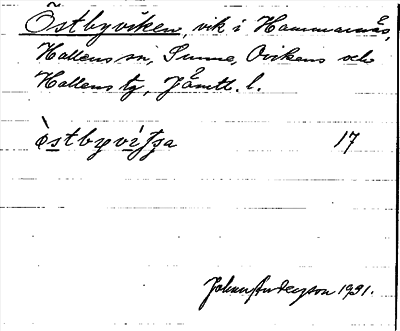 Östbyviken, vik i Hammarnäs,
Hallens sn, Sunne, Ovikens och
Hallens tg, Jämtl. l.
östbyviʃʃa 17
Johan Anderson 1931.